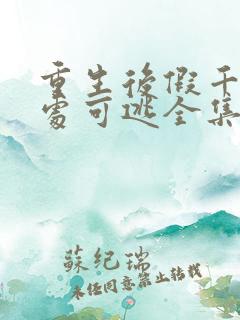 重生後假千
處可逃全集
蘇紀瑞
未經同意禁止轉載